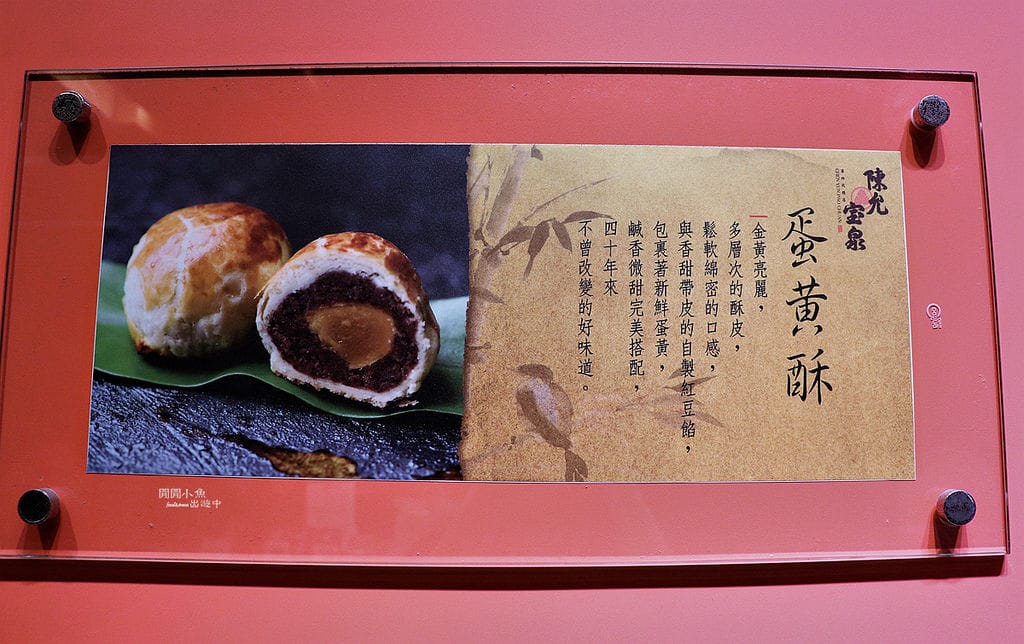 陳允
宝泉
蛋黃酥
金黃亮麗，
多層次的酥皮，
鬆軟綿密的口感，
與香甜帶皮的自製紅豆餡，
包裹著新鮮蛋黃，
鹹香微甜完美搭配，
四十年來
不曾改變的好味道。
閒閒小魚
出遊中